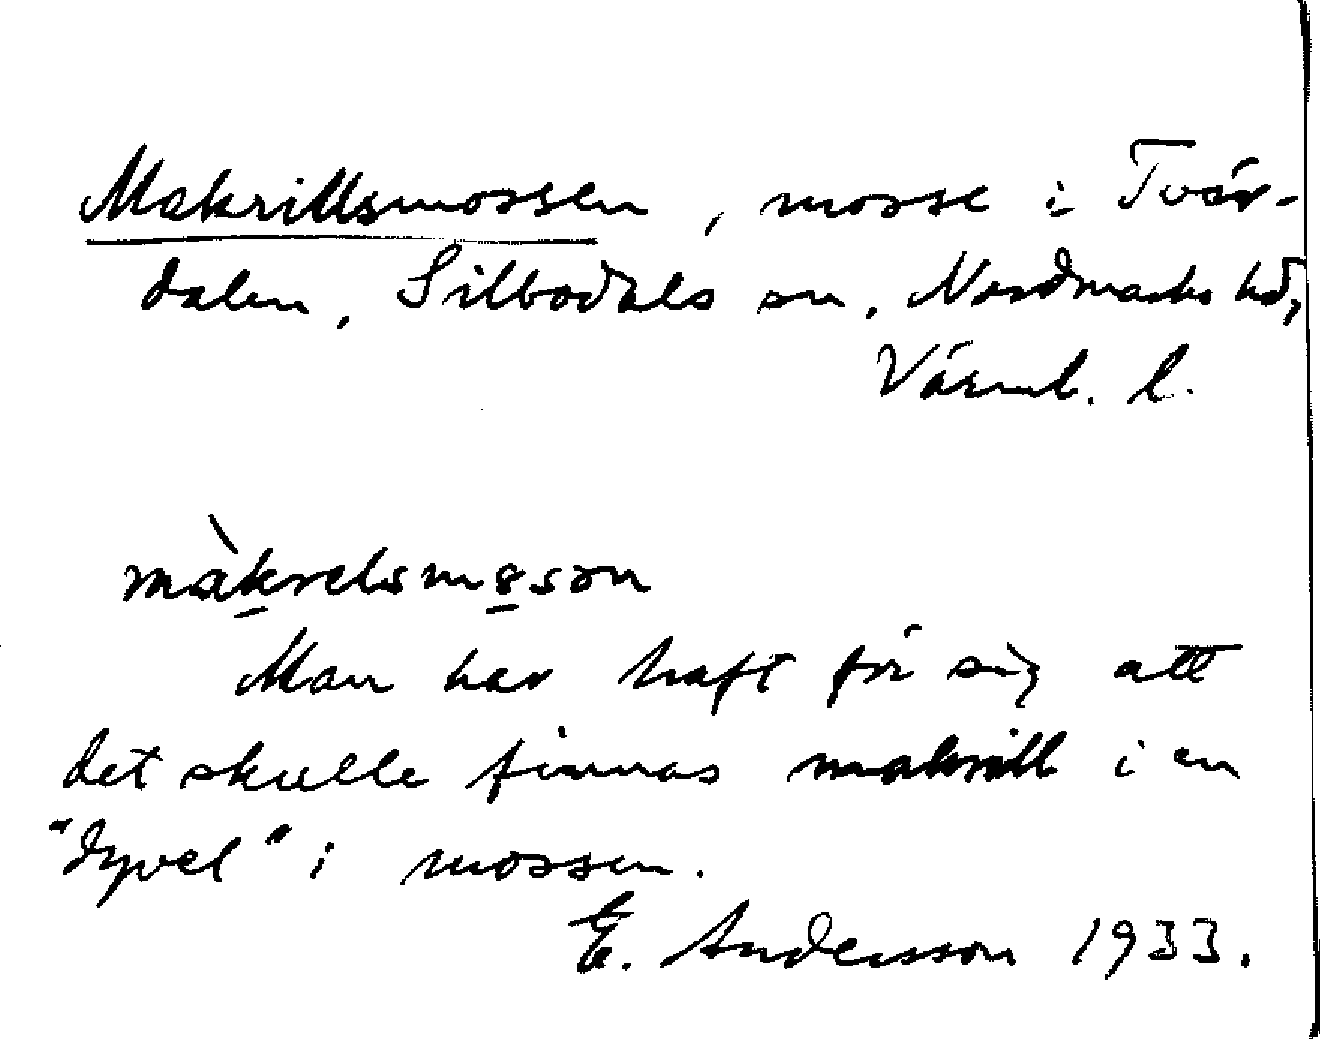 Makrillsmossen, mosse i Tvär-
dalen, Silbodals sn, Nordmarks hd,
Värml. l.
màk̲relsmo̲sən
Man har haft för sig att
det skulle finnas makrill i en
"dyvel" i mossen.
E. Andersson 1933.